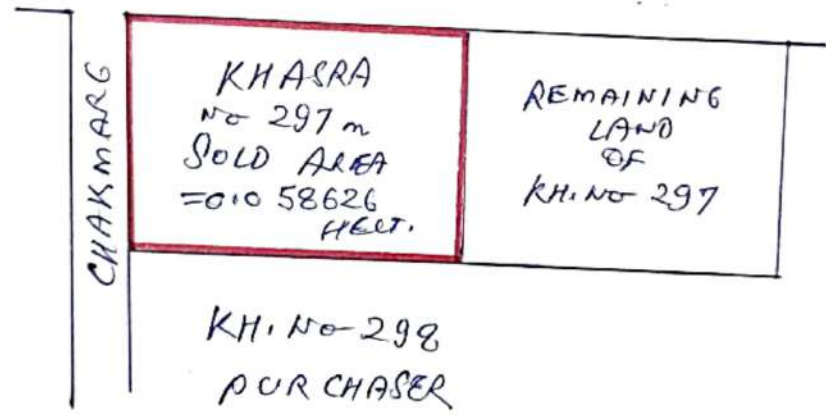 CHAKMARG
KHASRA
No 297m
SOLD AREA
=0.058626
HECT.
REMAINING
LAND
OF
KH.No 297
KH.No-298
PURCHASER